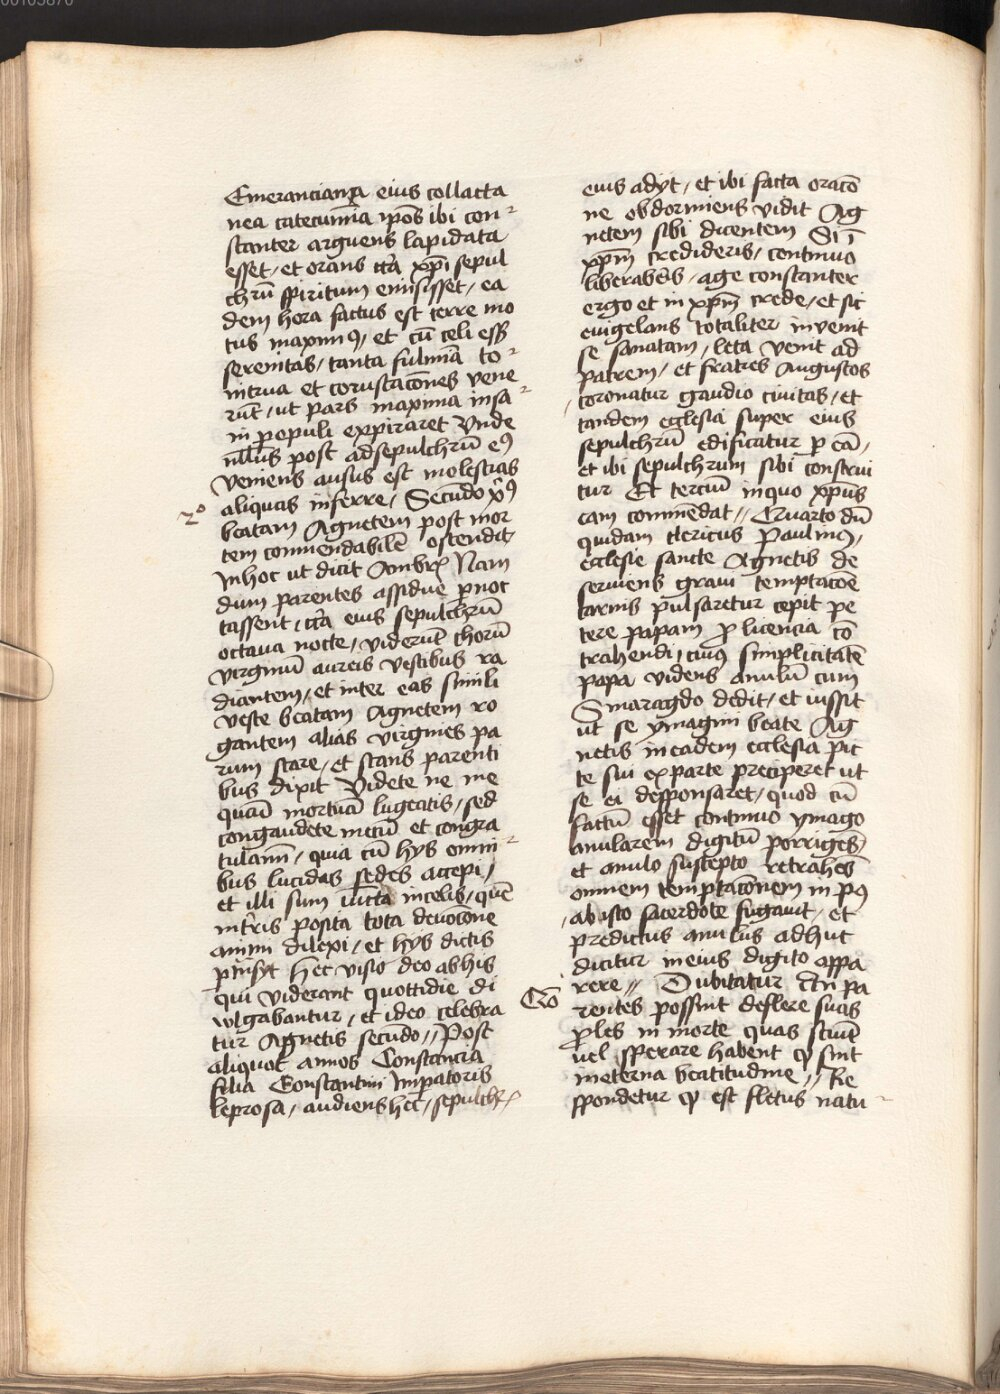 00105870
Emerancianna eius collacta
nea catecumīa ip̄os ibi con-
stanter arguens lapidata
esset / et orans ctͣa xp̄i sepul
chrū spiritum emisisset / ea
dem hora factus est terre mo
tus maximꝰ / et cū celi ess3
serenitas / tanta fulmīa to-
nitrua et coruscacōnes vene
rūt / ut pars maxima insa-
ni populi expiraret Vnde
nllus post ad sepulchrū eꝰ
veniens ausus est molestias
aliquas inferre / Secundo xꝰ
2º
beatam Agnetem post mor
tem commendabilē ostendit
In hoc ut dicit Ambrꝛ Nam
dum parentes assidue ꝑnoc
tassent ctͣa eius sepulchrū
octaua nocte / viderūt chorū
virginū aureis vestibus ra
diantem / et inter eas simili
veste beatam Agnetem ro
gantem alias virgines pa
rum stare / et stans parenti
bus dixit Videte ne me
quasi mortuā lugeatis / sed
congaudete mecū et congra
tulamī / quia cū hys omni-
bus lucidas sedes accepi /
et illi sum iūcta in celis / quē
in tr̄is posita tota deuocōne
animi dilexi / et hys dictis
ꝑtrāsyt hec visio deo ab his
qui viderant quottidie di
wlgabantur / et ideo celebra
tur Agnetis secundo // Post
aliquot annos Constancia
filia Constantini Imꝑatoris
leprosa / audiens hec / sepulchꝛ
eius adyt / et ibi facta oracō
ne obdormiens vidit Ag
netem sibi dicentem Si ī
xp̄m credideris / continuo
liberaberis / age constanter
ergo et in xp̄m crede / et sic
euigelans totaliter invenit
se sanatam / leta venit ad
patrem / et fratres Augustos
coronatur gaudio ciuitas / et
tandem ecclesia super eius
sepulchrū edificatur ꝑ eā /
et ibi sepulchrum sibi construi
tur Et terciū in quo xp̄us
eam commēdat // Quarto dū
quidam clericus Paulinꝰ /
ecclesie sancte Agnetis de
seruiens graui temptacōe
carnis pulsaretur cepit pe
tere papam ꝓ licencia cō
trahendi / cuiꝰ simplicitatē
papa videns anulū cum
Smaragdo dedit / et iussit
ut se ymagini beate Ag
netis in eadem ecclesia pic
te sui ex parte preciperet ut
se ei desponsaret / quod cū
factū esset continuo ymago
anularem digitū porrigēs
et anulo suscepto retrahēs
omnem temptacōnem in pꝰ
ab isto sacerdote fugauit / et
predictus anulus adhuc
dicitur in eius digito appa
rere // Dubitatur An pa
Qō
rentes possint deflere suas
ꝓles in morte quas sciūt
uel sperare habent ꝙ sint
in eterna beatitudine // Re
spondetur ꝙ est fletus natu-